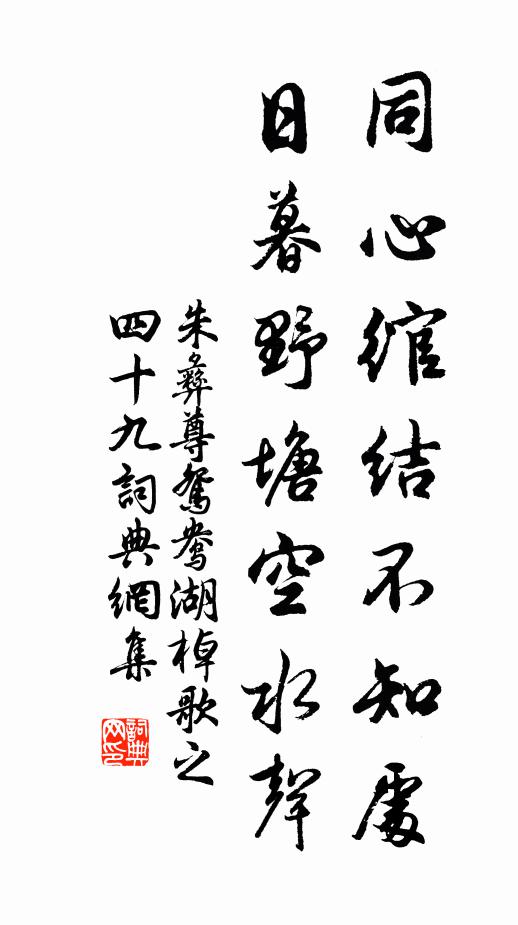 同心綰結不知處
日暮野塘空水聲
朱彝尊鴛鴦湖棹歌之
四十九詞典網集
詞典網印